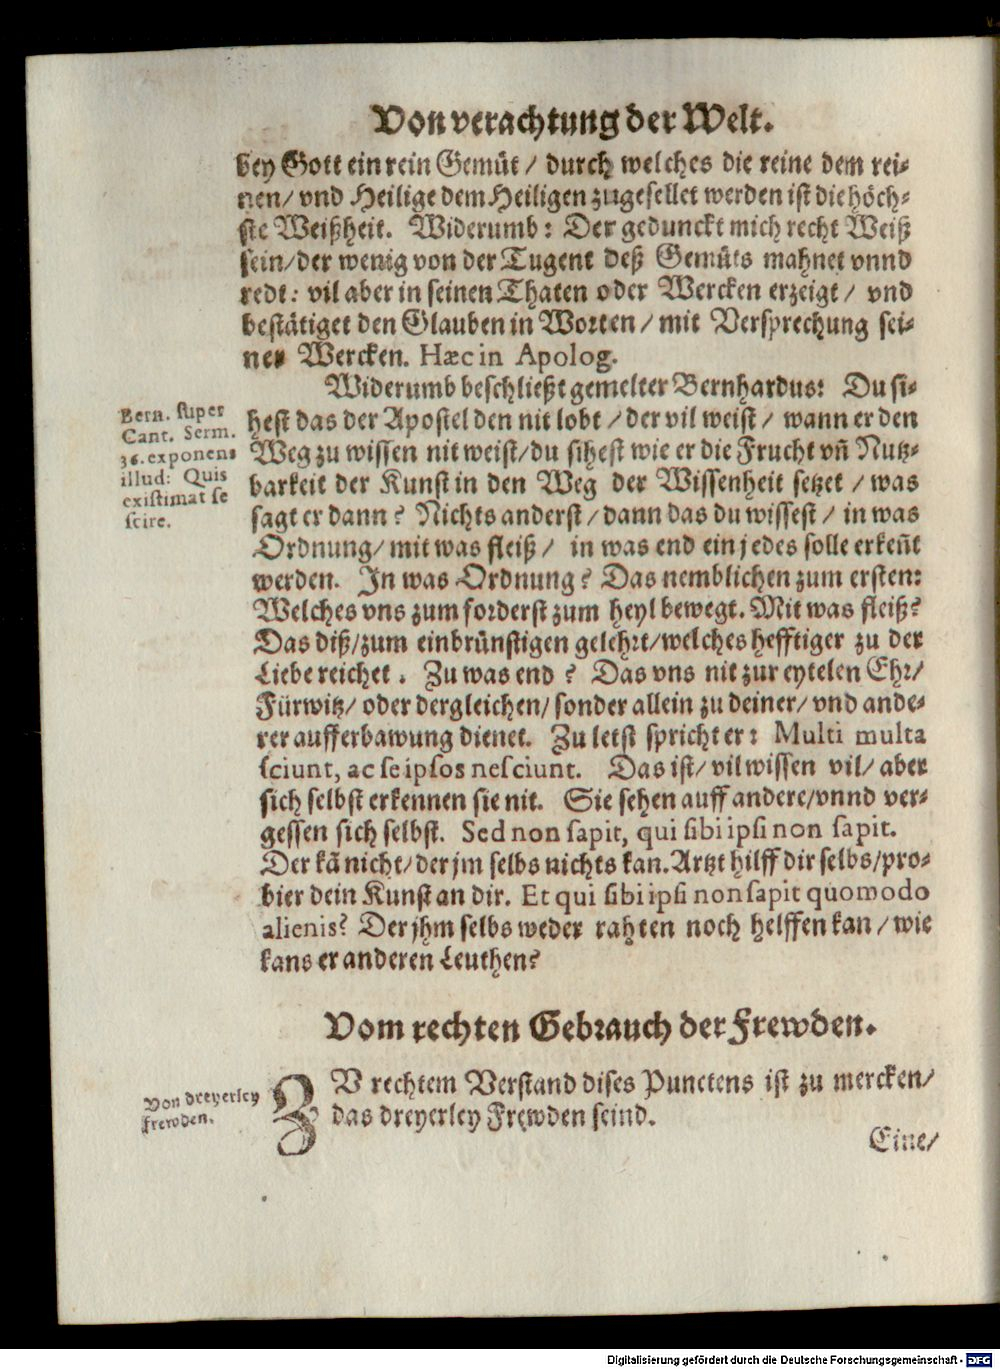 Von verachtung der Welt.
bey Gott ein rein Gemüt / durch welches die reine dem rei-
nen / vnd Heilige dem Heiligen zugesellet werden ist die höch-
ste Weißheit. Widerumb: Der gedunckt mich recht Weiß
sein / der wenig von der Tugent deß Gemüts mahnet vnnd
redt: vil aber in seinen Thaten oder Wercken erzeigt / vnd
bestätiget den Glauben in Worten / mit Versprechung sei-
nes Wercken. Hæc in Apolog.
Widerumb beschließt gemelter Bernhardus: Du si-
hest das der Apostel den nit lobt / der vil weist / wann er den
Weg zu wissen nit weist / du sihest wie er die Frucht vñ Nutz-
barkeit der Kunst in den Weg der Wissenheit setzet / was
sagt er dann? Nichts anderst / dann das du wissest / in was
Ordnung / mit was fleiß / in was end ein jedes solle erkeñt
werden. In was Ordnung? Das nemblichen zum ersten:
Welches vns zum forderst zum heyl bewegt. Mit was fleiß?
Das diß / zum einbrünstigen gelehrt / welches hefftiger zu der
Liebe reichet. Zu was end? Das vns nit zur eytelen Ehr /
Fürwitz / oder dergleichen / sonder allein zu deiner / vnd ande-
rer aufferbawung dienet. Zu letst spricht er: Multi multa
sciunt, ac se ipsos nesciunt. Das ist / vil wissen vil / aber
sich selbst erkennen sie nit. Sie sehen auff andere / vnnd ver-
gessen sich selbst. Sed non sapit, qui sibi ipsi non sapit.
Der kã nicht / der jm selbs nichts kan. Artzt hilff dir selbs / pro-
bier dein Kunst an dir. Et qui sibi ipsi non sapit quomodo
alienis? Der jhm selbs weder rahten noch helffen kan / wie
kans er anderen Leuthen?
Bern. super
Cant. Serm.
36. exponens
illud: Quis
existimat se
scire.
Vom rechten Gebrauch der Frewden.
Von dreyerley
frewden.
ZV rechtem Verstand dises Punctens ist zu mercken /
das dreyerley Frewden seind.
Eine /
Digitalisierung gefördert durch die Deutsche Forschungsgemeinschaft - DFG